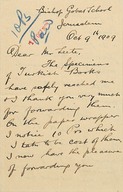 Bishop Gobat School
Jerusalem
Oct 9th 1909
Dear Mr
The Specimens
of Turkish Books
have safely reached me
& I thank you very much
for forwarding them.
On the paper wrapper
I notice 10 Prs which
I take to be cost of them
I now have the pleasure
of forwarding you